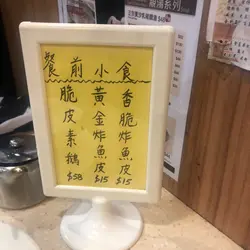 餐前小食
脆皮素鵝 $58
黃金炸魚皮 $15
香脆炸魚皮 $15